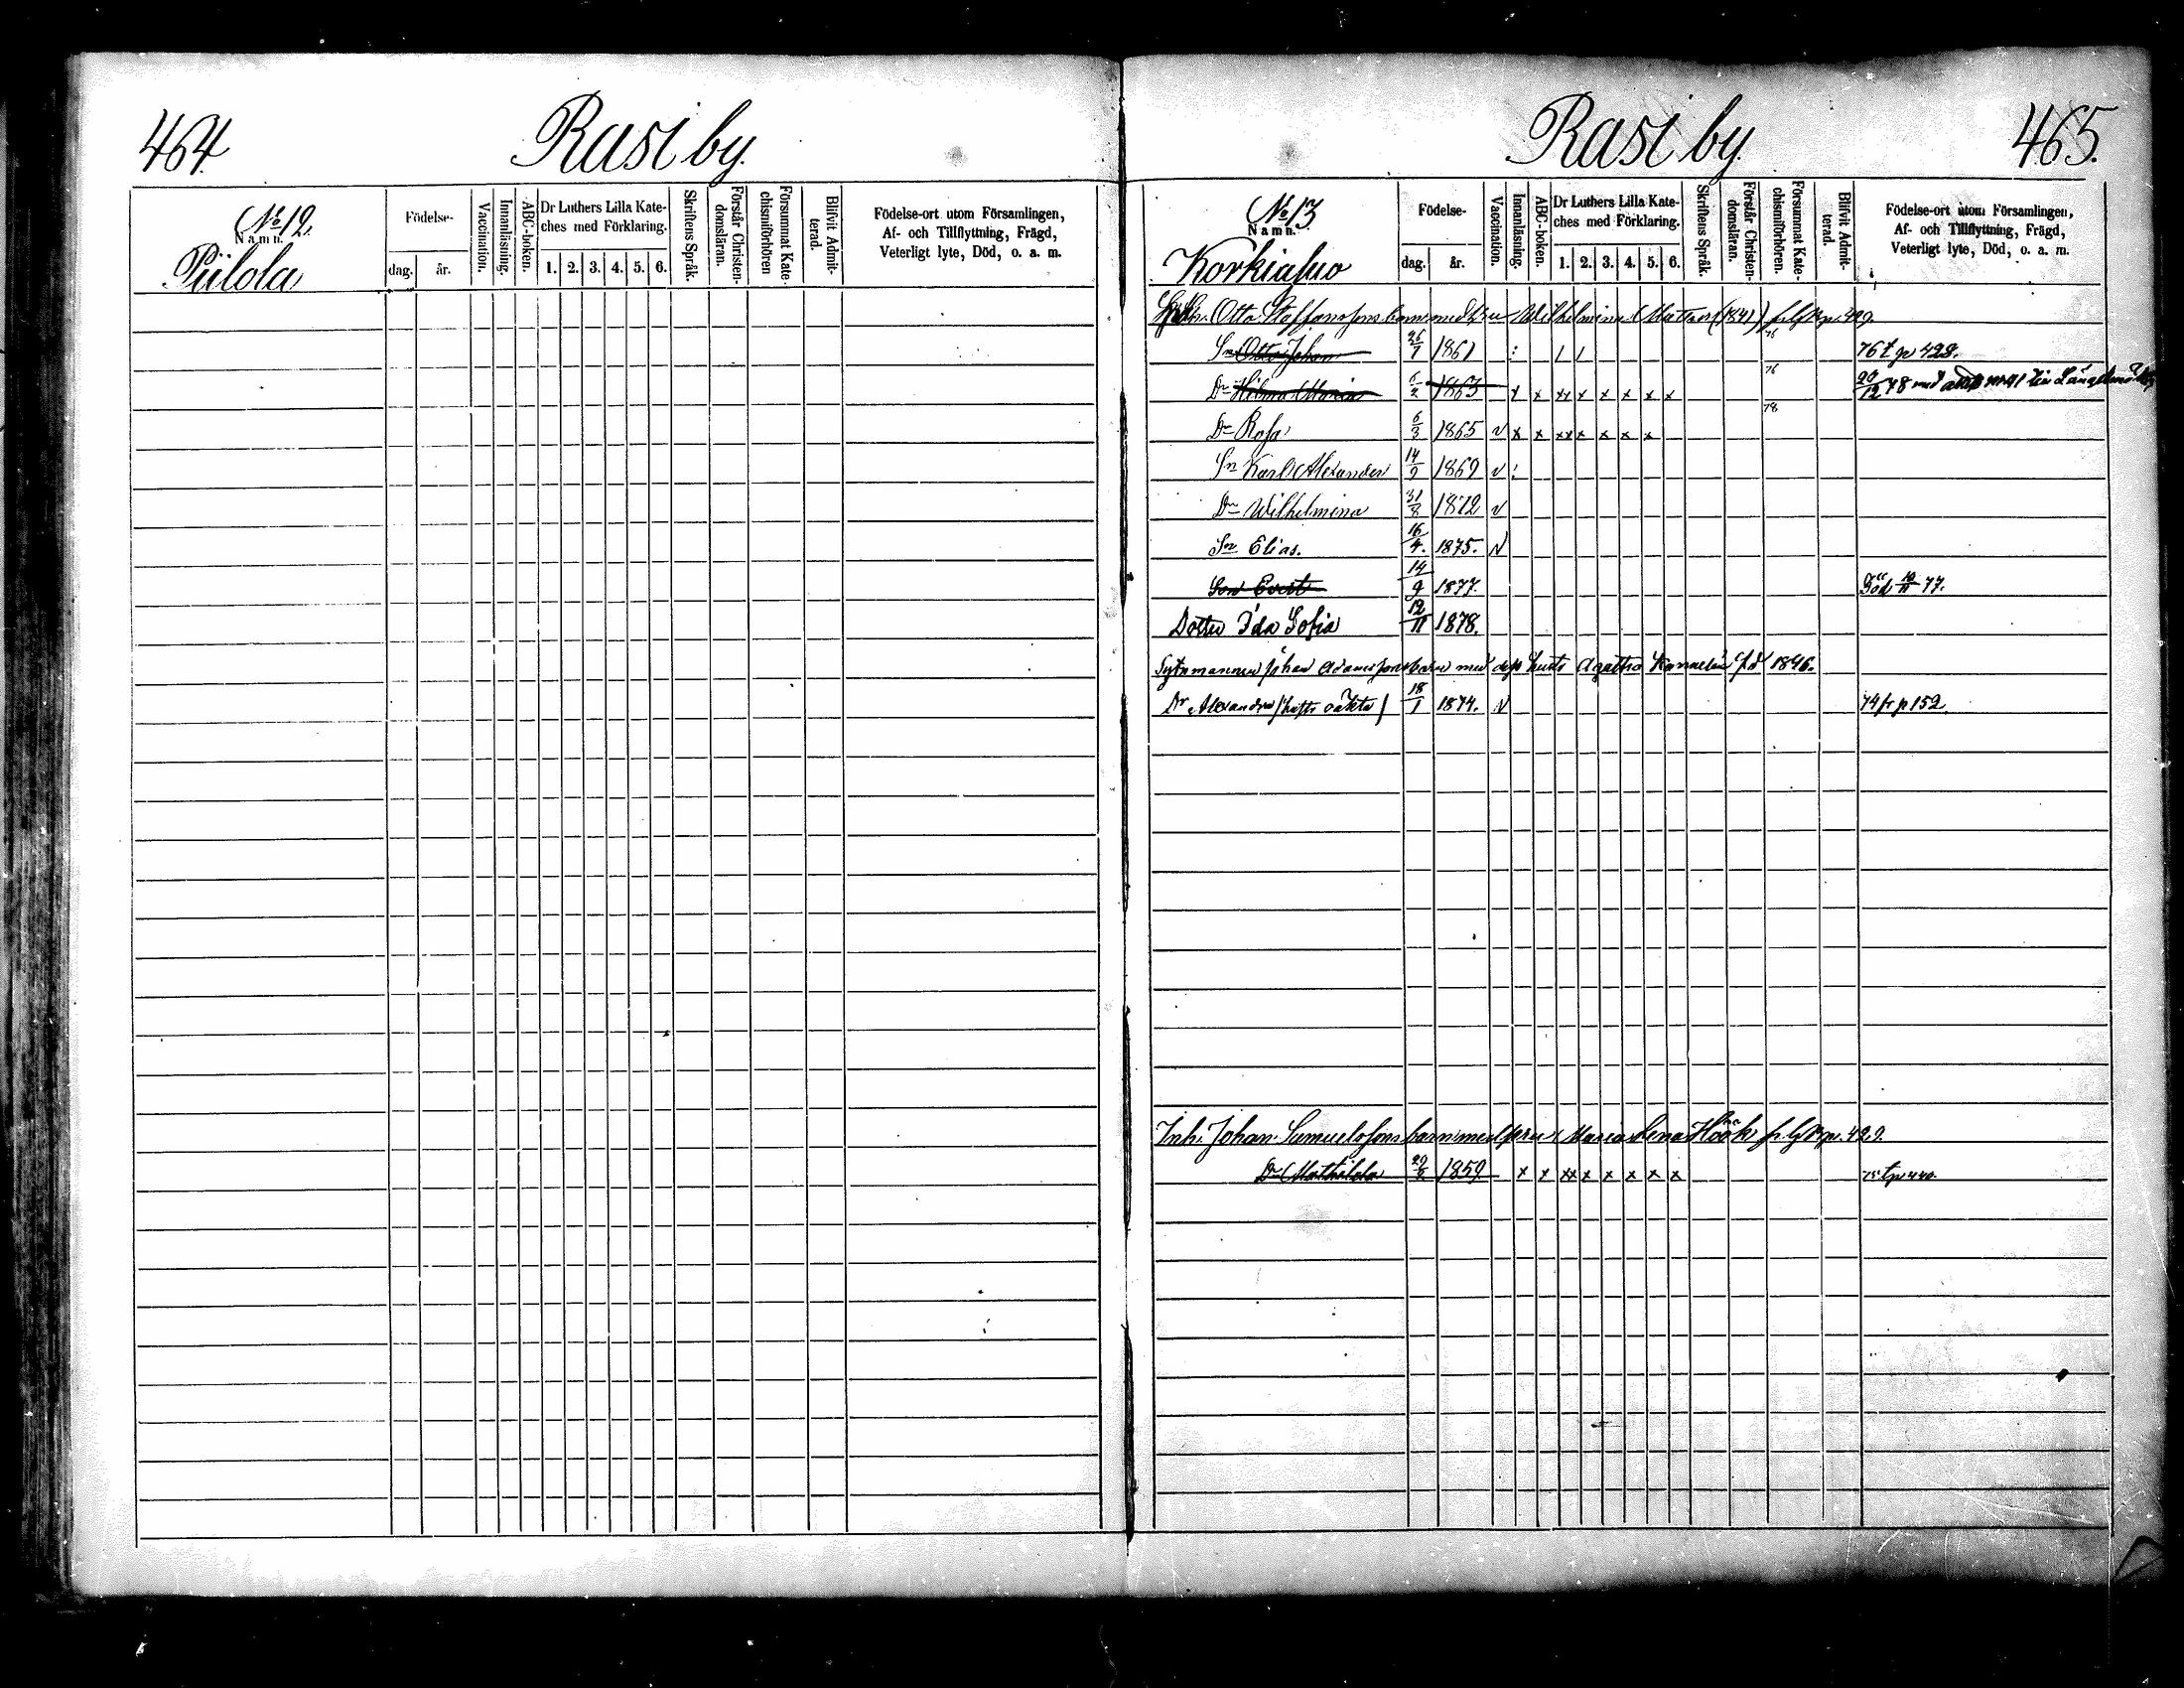 464.
Rasi by.
No 12.
Namn.
Piilola
Födelse-
dag.
år.
Vaccination.
Innanläsning.
ABC-boken.
Dr Luthers Lilla Kate-
ches med Förklaring.
1. 2. 3. 4. 5. 6.
Skriftens Språk.
Förstår Christen-
domsläran.
Försummat Kate-
chismiförhören
Blifvit Admit-
terad.
Födelse-ort utom Församlingen,
Af- och Tillflyttning, Frägd,
Veterligt lyte, Död, o. a. m.
Rasi by.
465.
No 13
Namn.
Korkiasuo
Födelse-
dag.
år.
Vaccination.
Innanläsning.
ABC-boken.
Dr Luthers Lilla Kate-
ches med Förklaring.
1. 2. 3. 4. 5. 6.
Skriftens Språk.
Förstår Christen-
domsläran.
Försummat Kate-
chismiförhören.
Blifvit Admit-
terad.
Födelse-ort utom Församlingen,
Af- och Tillflyttning, Frägd,
Veterligt lyte, Död, o. a. m.
Otto Staffanssons barn med hru Wilhelmina Mattsdr (1841) p. 429.
Sn Otto Johan 26/7 1861 : / / 76 t p 428.
76
Dr Hilma Maria 6/2 1863 x x xx x x x x x 76 20/12 78 med
Dr Rosa 6/3 1865 v x x xx x x x x 78
Sn Karl Alexander 14/9 1869 v :
Dr Wilhelmina 31/8 1872 v
Sn Elias. 16/4. 1875. v
Son Evert 14/9 1877. Död 10/11 77.
Dotter Ida Sofia 12/11 1878.
Johan Adamssons barn med dess hustr Agatha 1846.
Dr Alexandra 18/1 1874. v 74 fr p 152.
Inh. Johan Samuelssons barn med hru Maria Lena Höök p. 429.
Dr Mathilda 29/2 1859. x x xx x x x x x 75 t p 440.